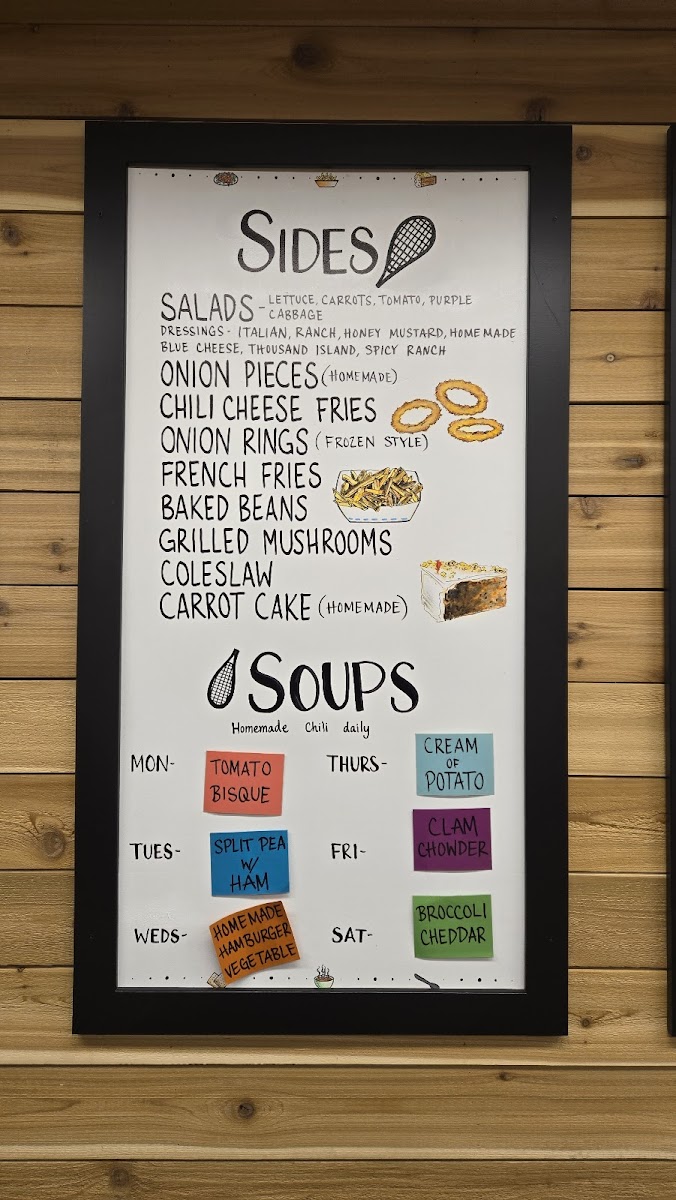 SIDES
SALADS - LETTUCE, CARROTS, TOMATO, PURPLE
CABBAGE
DRESSINGS - ITALIAN, RANCH, HONEY MUSTARD, HOMEMADE
BLUE CHEESE, THOUSAND ISLAND, SPICY RANCH
ONION PIECES (HOMEMADE)
CHILI CHEESE FRIES
ONION RINGS (FROZEN STYLE)
FRENCH FRIES
BAKED BEANS
GRILLED MUSHROOMS
COLESLAW
CARROT CAKE (HOMEMADE)
SOUPS
Homemade Chili daily
MON-
TOMATO
BISQUE
TUES-
SPLIT PEA
W/
HAM
WEDS-
HOMEMADE
HAMBURGER
VEGETABLE
THURS-
CREAM
OF
POTATO
FRI-
CLAM
CHOWDER
SAT-
BROCCOLI
CHEDDAR